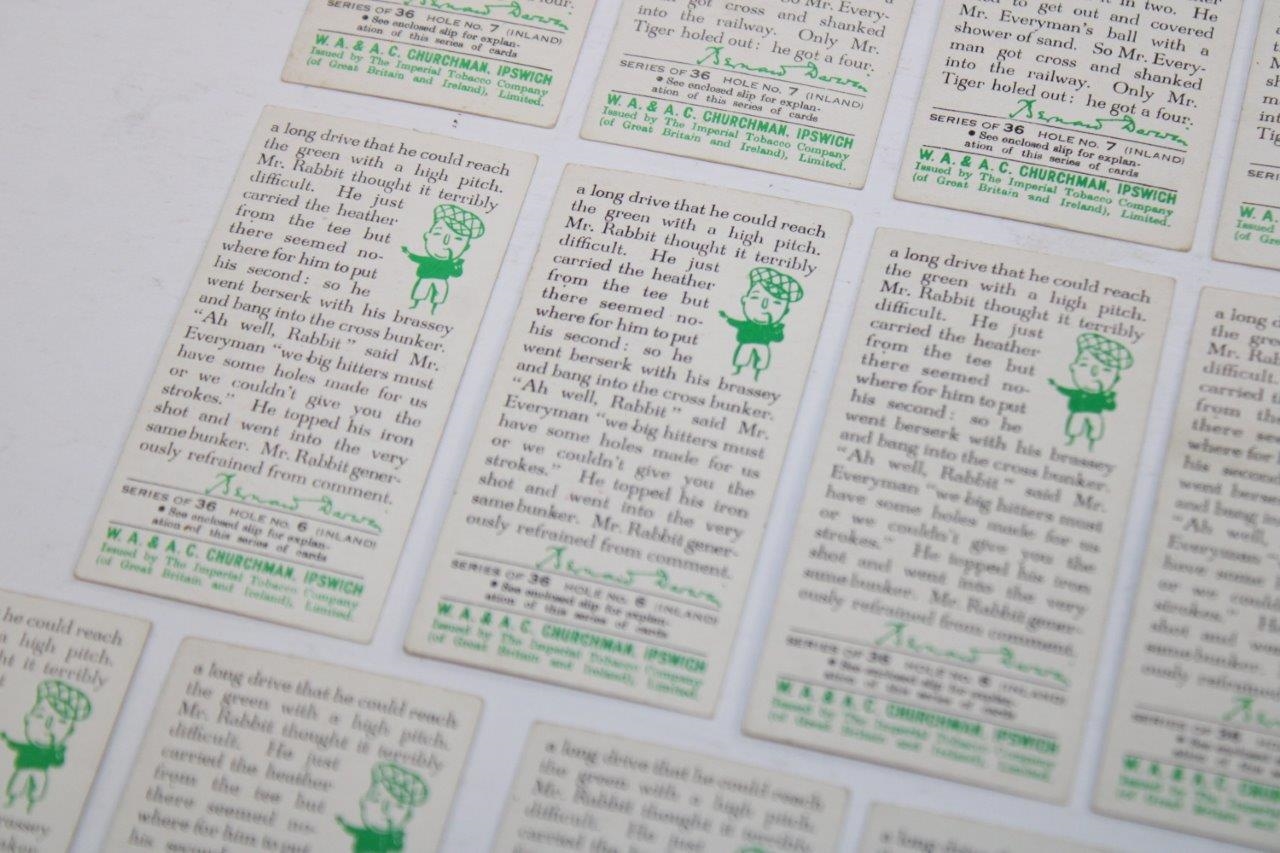 four.
Bernard Darwin
SERIES OF 36 HOLE NO. 7 (INLAND)
• See enclosed slip for explan-
ation of this series of cards
W. A. & A. C. CHURCHMAN, IPSWICH
Issued by The Imperial Tobacco Company
(of Great Britain and Ireland), Limited.
So Mr. Every-
got cross and shanked
into the railway. Only Mr.
Tiger holed out: he got a four.
Bernard Darwin
SERIES OF 36 HOLE NO. 7 (INLAND)
• See enclosed slip for explan-
ation of this series of cards
W. A. & A. C. CHURCHMAN, IPSWICH
Issued by The Imperial Tobacco Company
(of Great Britain and Ireland), Limited.
in two. He
to get out and covered
Mr. Everyman's ball with a
shower of sand. So Mr. Every-
man got cross and shanked
into the railway. Only Mr.
Tiger holed out: he got a four.
Bernard Darwin
SERIES OF 36 HOLE NO. 7 (INLAND)
• See enclosed slip for explan-
ation of this series of cards
W. A. & A. C. CHURCHMAN, IPSWICH
Issued by The Imperial Tobacco Company
(of Great Britain and Ireland), Limited.
W. A.
Issued
(of Gre
a long drive that he could reach
the green with a high pitch.
Mr. Rabbit thought it terribly
difficult. He just
carried the heather
from the tee but
there seemed no-
where for him to put
his second: so he
went berserk with his brassey
and bang into the cross bunker.
"Ah well, Rabbit" said Mr.
Everyman "we big hitters must
have some holes made for us
or we couldn't give you the
strokes." He topped his iron
shot and went into the very
same bunker. Mr. Rabbit gener-
ously refrained from comment.
Bernard Darwin
SERIES OF 36 HOLE NO. 6 (INLAND)
• See enclosed slip for explan-
ation of this series of cards
W. A. & A. C. CHURCHMAN, IPSWICH
Issued by The Imperial Tobacco Company
(of Great Britain and Ireland), Limited.
a long drive that he could reach
the green with a high pitch.
Mr. Rabbit thought it terribly
difficult. He just
carried the heather
from the tee but
there seemed no-
where for him to put
his second: so he
went berserk with his brassey
and bang into the cross bunker.
"Ah well, Rabbit" said Mr.
Everyman "we big hitters must
have some holes made for us
or we couldn't give you the
strokes." He topped his iron
shot and went into the very
same bunker. Mr. Rabbit gener-
ously refrained from comment.
Bernard Darwin
SERIES OF 36 HOLE NO. 6 (INLAND)
• See enclosed slip for explan-
ation of this series of cards
W. A. & A. C. CHURCHMAN, IPSWICH
Issued by The Imperial Tobacco Company
(of Great Britain and Ireland), Limited.
a long drive that he could reach
the green with a high pitch.
Mr. Rabbit thought it terribly
difficult. He just
carried the heather
from the tee but
there seemed no-
where for him to put
his second: so he
went berserk with his brassey
and bang into the cross bunker.
"Ah well, Rabbit" said Mr.
Everyman "we big hitters must
have some holes made for us
or we couldn't give you the
strokes." He topped his iron
shot and went into the very
same bunker. Mr. Rabbit gener-
ously refrained from comment.
Bernard Darwin
SERIES OF 36 HOLE NO. 6 (INLAND)
• See enclosed slip for explan-
ation of this series of cards
W. A. & A. C. CHURCHMAN, IPSWICH
Issued by The Imperial Tobacco Company
(of Great Britain and Ireland), Limited.
a long
the gree
Mr. Rab
difficult.
carried t
from th
there see
where for
his secon
went berse
and bang in
"Ah well,
Everyman
have some
or we coul
strokes." H
shot and we
same bunker.
ously refrain
SERIES OF 36
• See enclosed
ation of this
W. A. & A. C.
Issued by The
(of Great Britain and
he could reach
a high pitch.
ht it terribly
brassey
bunker.
a long drive that he could reach
the green with a high pitch.
Mr. Rabbit thought it terribly
difficult. He just
carried the heather
from the tee but
there seemed no-
where for him to put
his second: so he
a long drive that he could reach
the green with a high pitch.
Mr. Rabbit thought it terribly
difficult. He just
carried the heather
a long drive that he could